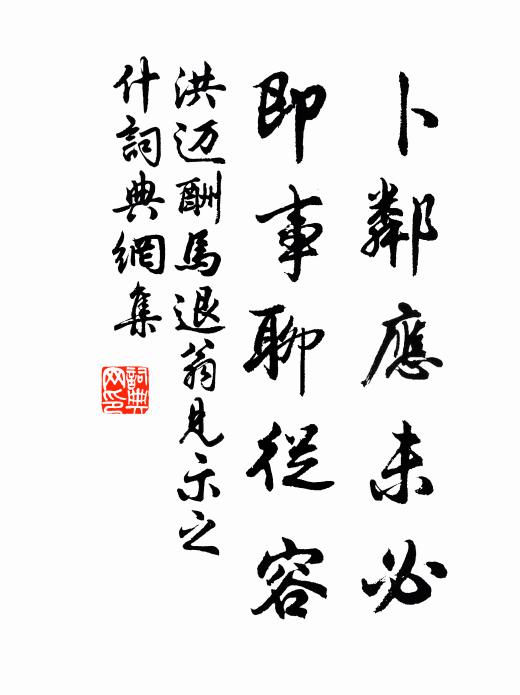 卜鄰應未必
即事聊從容
洪迈酬馬退翁見示之
什詞典網集
詞典
网印